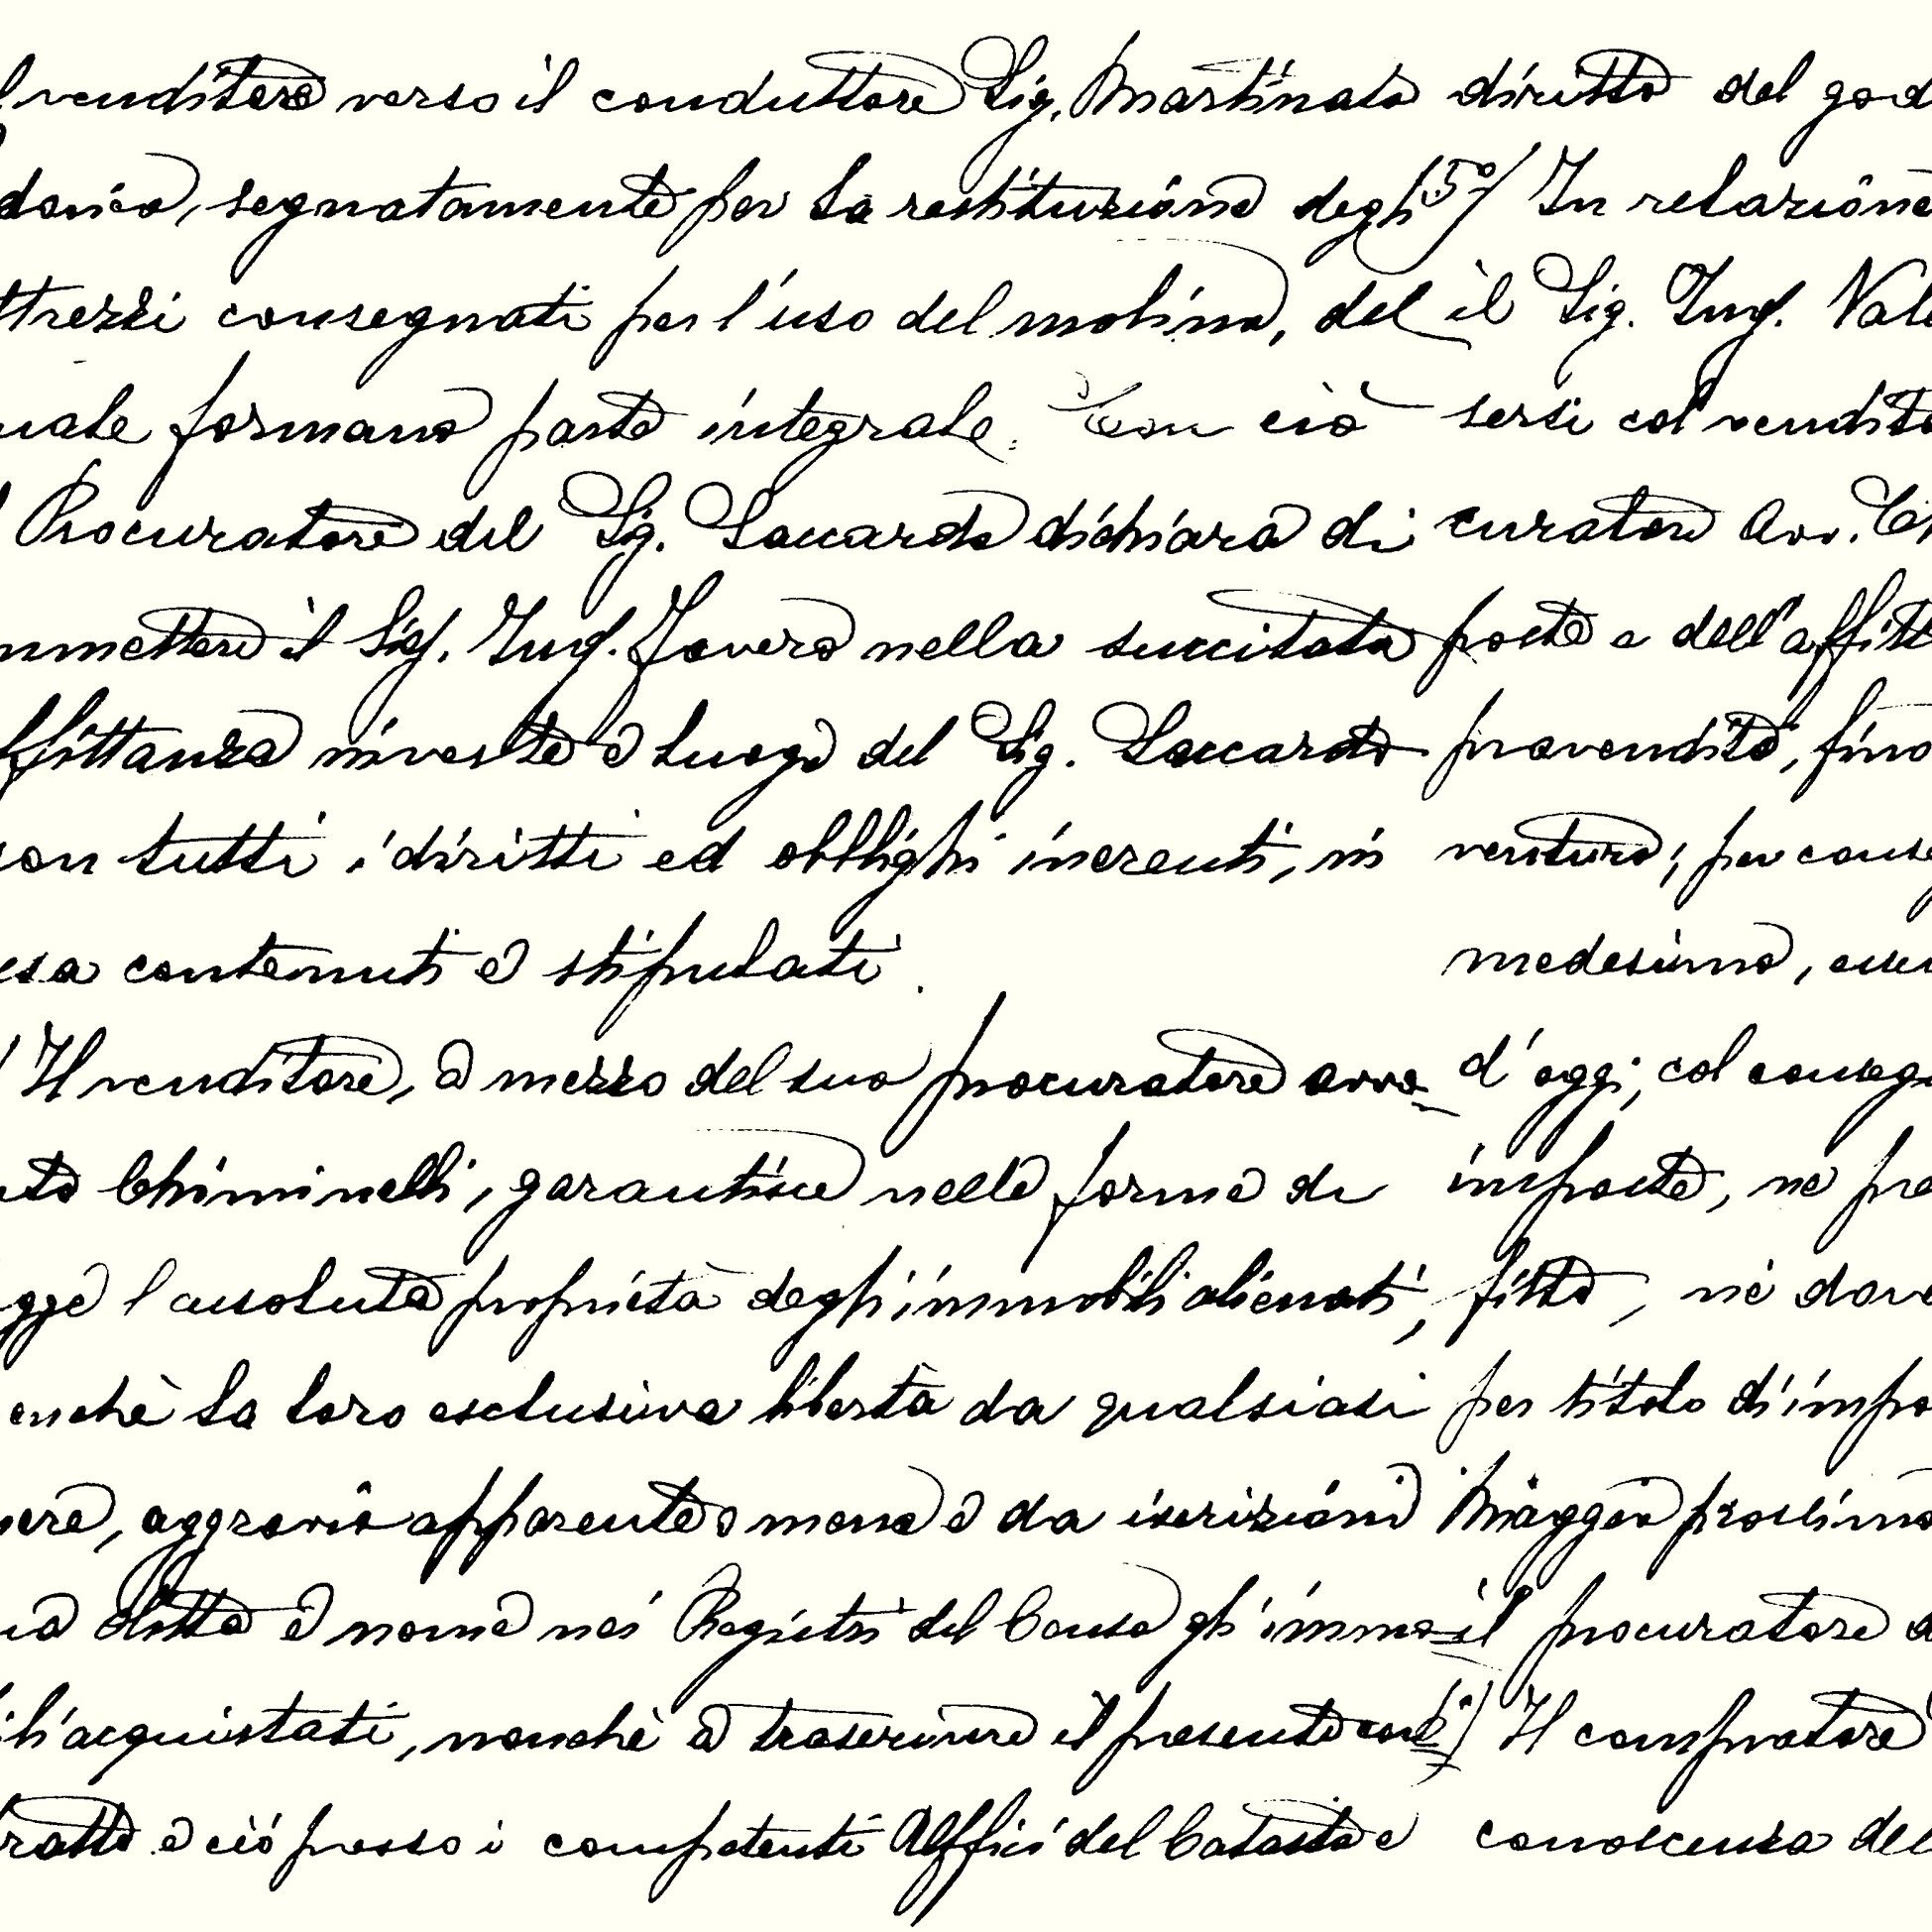 venditore verso il conduttore Sig. Martinato diritto del
segnatamente per la restituzione degli 5°/ In relazione
consegnati per l'uso del molino, del il Sig. Ing.
formano parte integrale. Con ciò sersi col
Procuratore del Sig. Saccardo dichiara di curatore Avv.
il Sig. Ing. Favero nella succitata poste e
investe a luogo del Sig. Saccardo provendita, fino
tutti i diritti ed obblighi inerenti, in venturo; per
contenuti e stipulati. medesimo,
Il venditore, a mezzo del suo procuratore avvo- d'oggi; col
Chiminelli, garantisce nelle forme di imposte, ne
l'assoluta proprietà degli immobili alienati, fitto, nè
la loro esclusiva libertà da qualsiasi per titolo di
aggravio apparente o meno e da iscrizioni Maggio prossimo
ditta e nome nei Registri del Censo gli immo- il procuratore
acquistati, nonchè a trascrivere il presente con- Il compratore
e ciò presso i competenti Uffici del Catasto e conoscenza